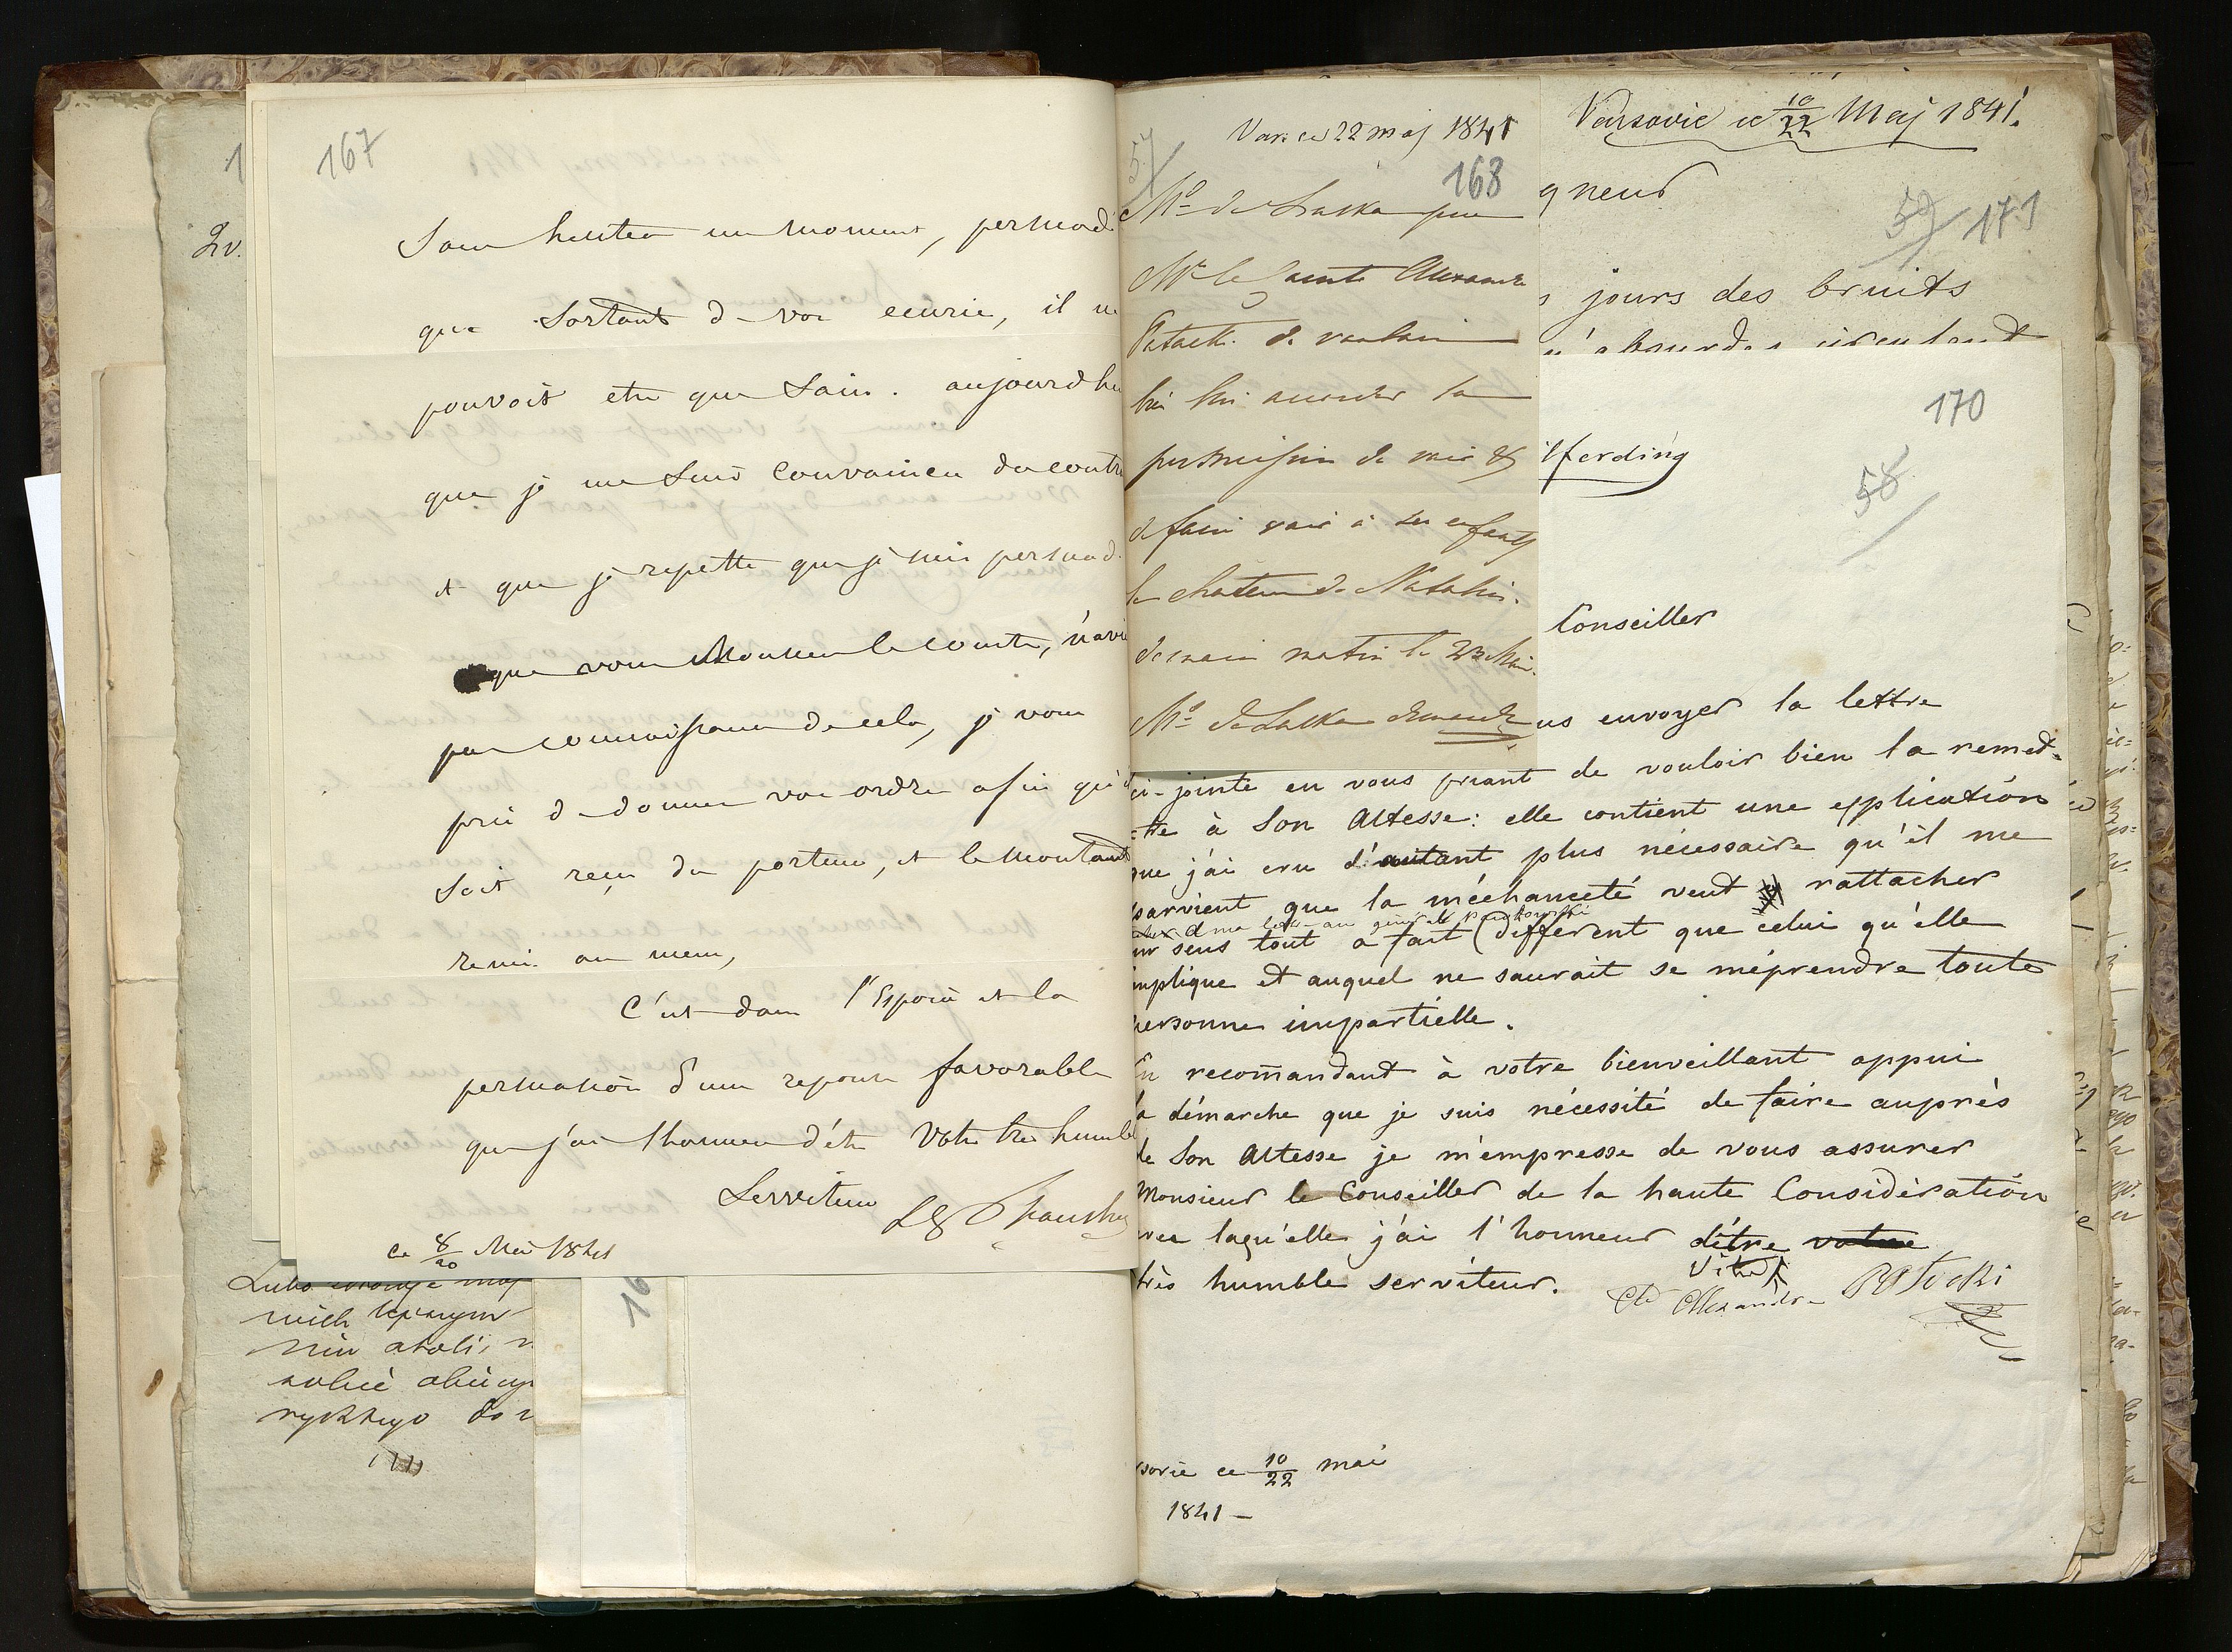 167
Sans hesiter un moment, persuadé
que Sortant de vos ecurie, il ne
pouvoit etre que Sain. aujourdhu
que je me suis Convaincu du contr
et que je repette que je suis persuad
que vous Monsieur le Comte, n'avi
pas connoissance de cela, je vous
prie de donner vos ordre afin qu'il
Soit reçu du porteur, et le Montant
remis au meme,
C'est dans l'Espoir et la
persuasion d'une reponse favorable
que j'ai l'honneur d'étre Votre tres humble
Serviteur
ce 8/20 Mai 1841
nich lepszym
168
Var. ce 22 maj 1841
57
Me de Laska prie
Mr le Comte Alexandre
Potocki de vouloir
bien lui accorder la
permission de voir et
de faire voir à ses enfants
le chateau de Natolin.
demain matin le 23 Mai.
Me de Laska demande
Varsovie ce 10/22 Maj 1841.
gneur
59 171
s jours des bruits
absurdes circulent
170
58
ilferding
Conseiller
us envoyer la lettre
ci-jointe en vous priant de vouloir bien la remet-
-tre à Son Altesse: elle contient une explication
que j'ai cru d'autant plus nécessaire qu'il me
parvient que la méchanceté veut rattacher
d ma lettre au général
un sens tout a fait (différent que celui qu'elle
implique et auquel ne saurait se méprendre toute
personne impartiélle.
En recomandant à votre bienveillant appui
la démarche que je suis nécessité de faire auprès
de Son Altesse je m'empresse de vous assurer
Monsieur le Conseiller de la haute Considération
avec laqu'elle j'ai l'honneur d'être votre
très humble serviteur.
Cte Alexandre Potocki
sovie ce 10/22 mai
1841 -